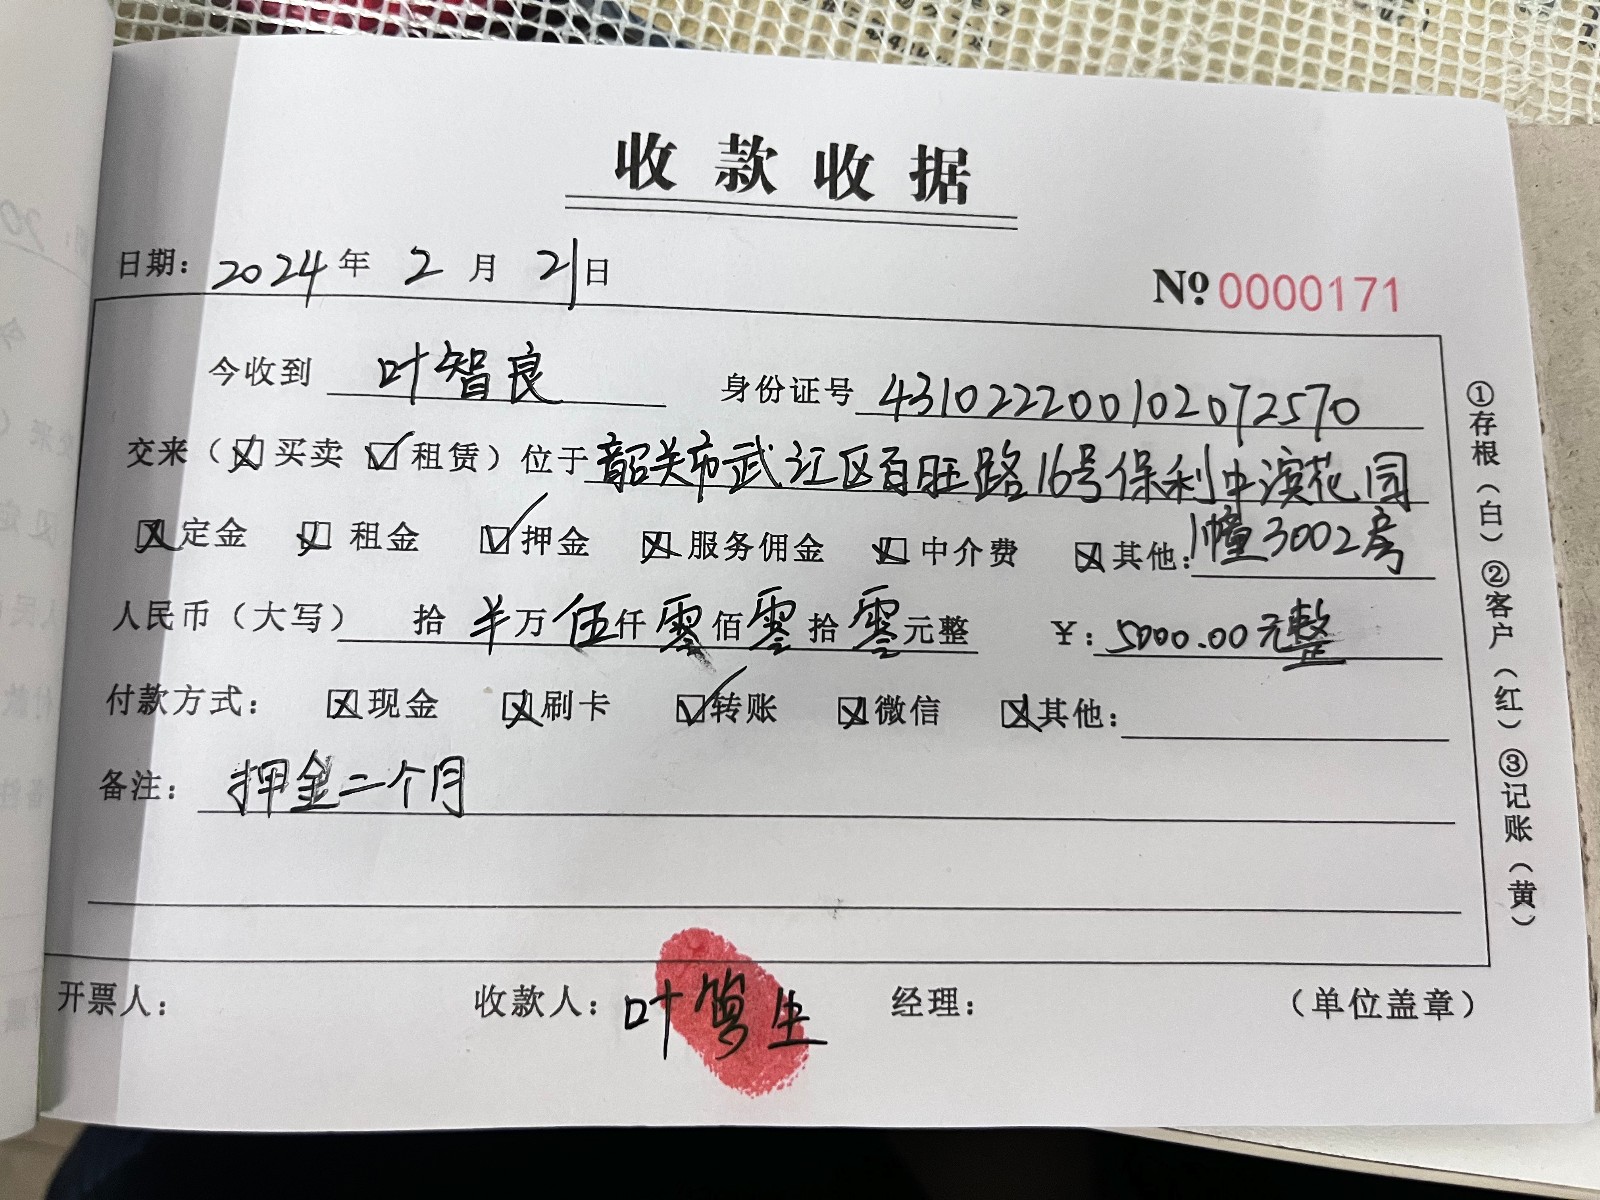 收款收据
日期：2024年 2 月 21日
№ 0000171
今收到 叶智良 身份证号 431022200102072570
交来（☒买卖 ☑租赁）位于韶关市武江区百旺路16号保利中滨花园
☒定金 ☒租金 ☑押金 ☒服务佣金 ☒中介费 ☒其他：1幢3002房
人民币（大写） 拾 半万伍仟零佰零拾零元整 ￥：5000.00元整
付款方式： ☒现金 ☒刷卡 ☑转账 ☒微信 ☒其他：
备注：押金二个月
开票人： 收款人：叶 生 经理： （单位盖章）
①存根（白）②客户（红）③记账（黄）